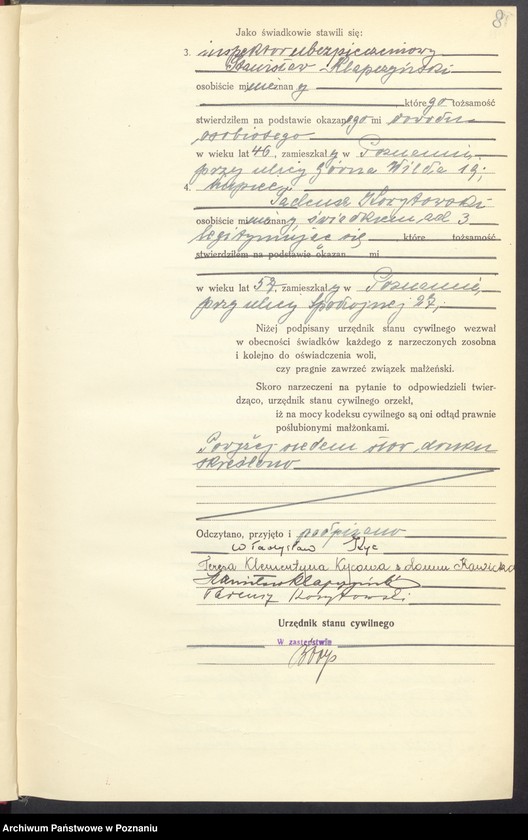 8
Jako świadkowie stawili się:
3. inspektor ubezpieczeniowy
Stanisław Kłapczyński
osobiście mi nieznany
, którego tożsamość
stwierdziłem na podstawie okazanego mi dowodu
osobistego
w wieku lat 46, zamieszkały w Poznaniu,
przy ulicy Górna Wilda 19;
4. kupiec
Tadeusz Korytowski
osobiście mi nieznany świadkiem ad 3
legitymując się które tożsamość
stwierdziłem na podstawie okazan mi
w wieku lat 57, zamieszkały w Poznaniu,
przy ulicy Spokojnej 27;
Niżej podpisany urzędnik stanu cywilnego wezwał
w obecności świadków każdego z narzeczonych zosobna
i kolejno do oświadczenia woli,
czy pragnie zawrzeć związek małżeński.
Skoro narzeczeni na pytanie to odpowiedzieli twier-
dząco, urzędnik stanu cywilnego orzekł,
iż na mocy kodeksu cywilnego są oni odtąd prawnie
poślubionymi małżonkami.
Powyżej siedem słów druku
skreślono
Odczytano, przyjęto i podpisano
Władysław Kyc
Teresa Klementyna Kycowa z domu Kawicka
Stanisław Kłapczyński
Tadeusz Korytowski
Urzędnik stanu cywilnego
W zastępstwie
Archiwum Państwowe w Poznaniu